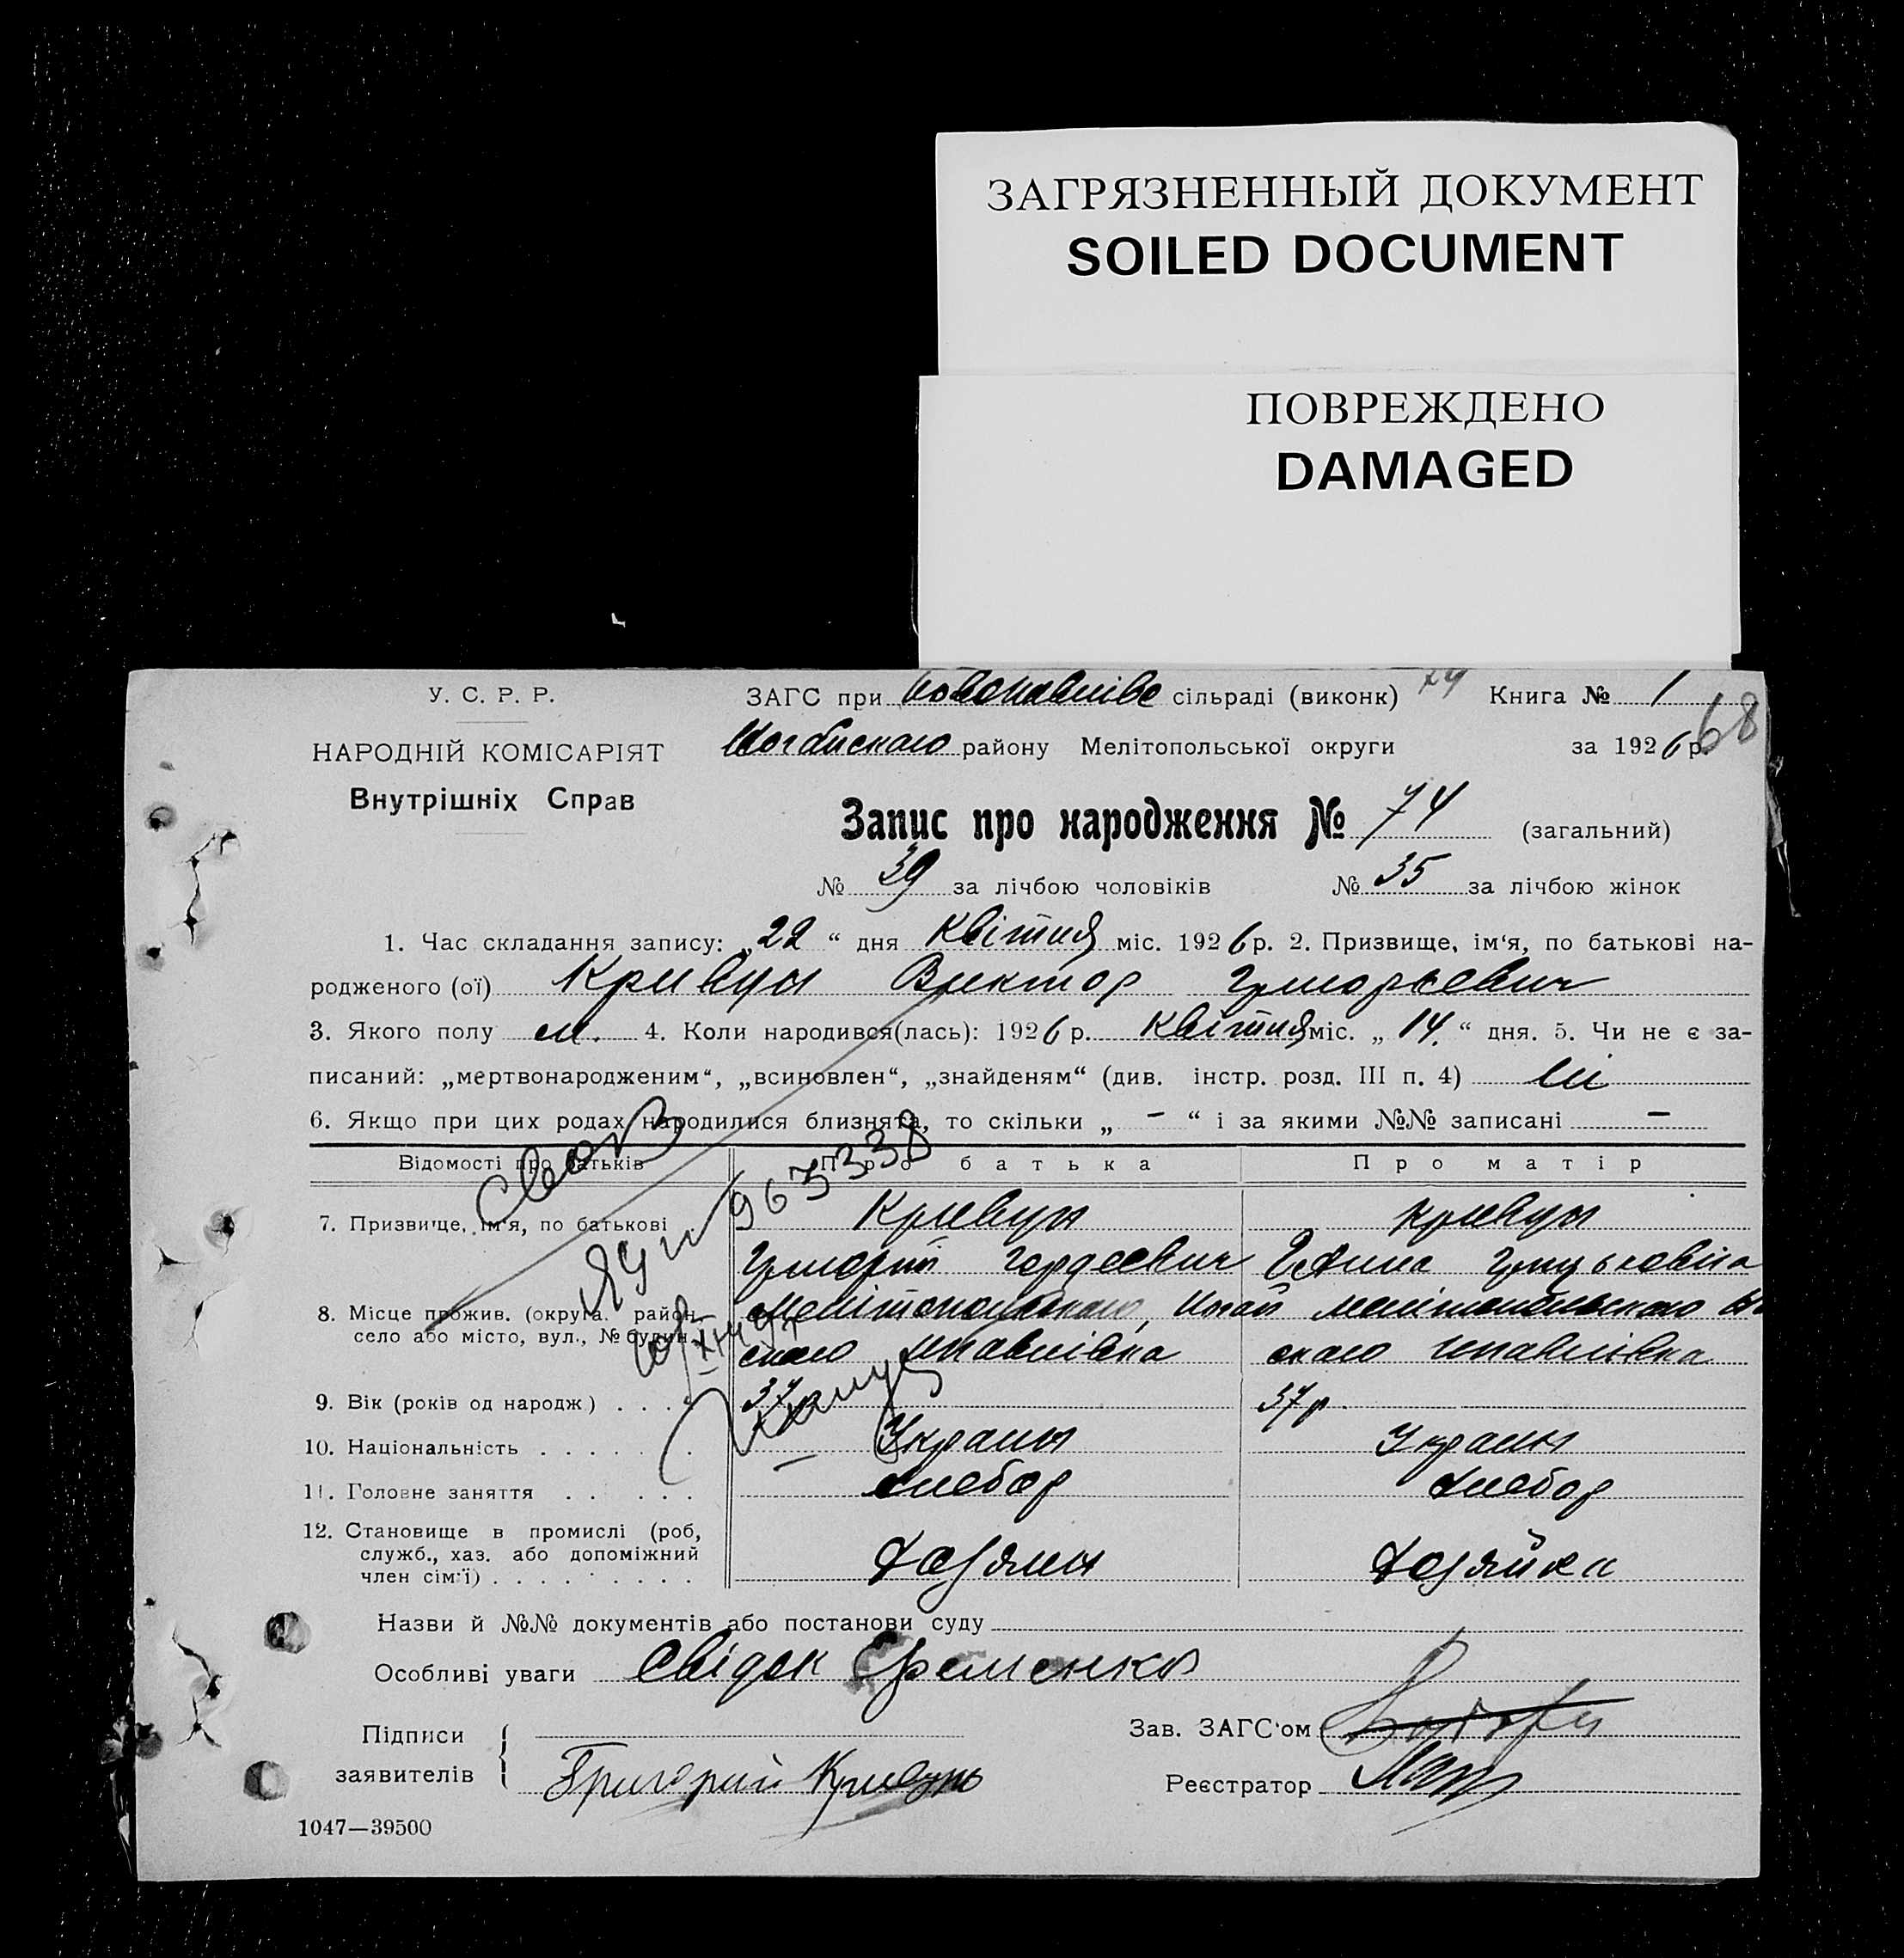 ЗАГРЯЗНЕННЫЙ ДОКУМЕНТ
SOILED DOCUMENT
ПОВРЕЖДЕНО
DAMAGED
У. С. Р. Р. ЗАГС при сільраді (виконк) Книга № 1
68
НАРОДНІЙ КОМІСАРІЯТ району Мелітопольської округи за 1926 р.
Внутрішніх Справ
Запис про народження № 74 (загальний)
№ 39 за лічбою чоловіків № 35 за лічбою жінок
1. Час складання запису: „22“ дня Квітня міс. 1926 р. 2. Призвище, ім'я, по батькові на-
родженого (ої) Кривун Виктор Григорьевич
3. Якого полу м. 4. Коли народився(лась): 1926 р. Квітня міс. „14.“ дня. 5. Чи не є за-
писаний: „мертвонародженим“, „всиновлен“, „знайденям“ (див. інстр. розд. III п. 4) ні
6. Якщо при цих родах народилися близнята, то скільки „ – “ і за якими №№ записані –
Відомості про батьків Про батька Про матір
963338
7. Призвище, ім'я, по батькові Кривун Кривун
Григорий Гордеевич Ганна
8. Місце прожив. (округа, район,
село або місто, вул., № будин.
9. Вік (років од народж) . . . . 37р 37р.
10. Національність . . . . . . . Украин Украин
11. Головне заняття . . . . . . хлебор хлебор
12. Становище в промислі (роб,
служб., хаз. або допоміжний
член сім'ї) . . . . . . . . . Хозяин Хозяйка
Назви й №№ документів або постанови суду
Особливі уваги Свідок Єременко
Підписи Зав. ЗАГС'ом
заявителів Григорий Кривунь Реєстратор
1047—39500